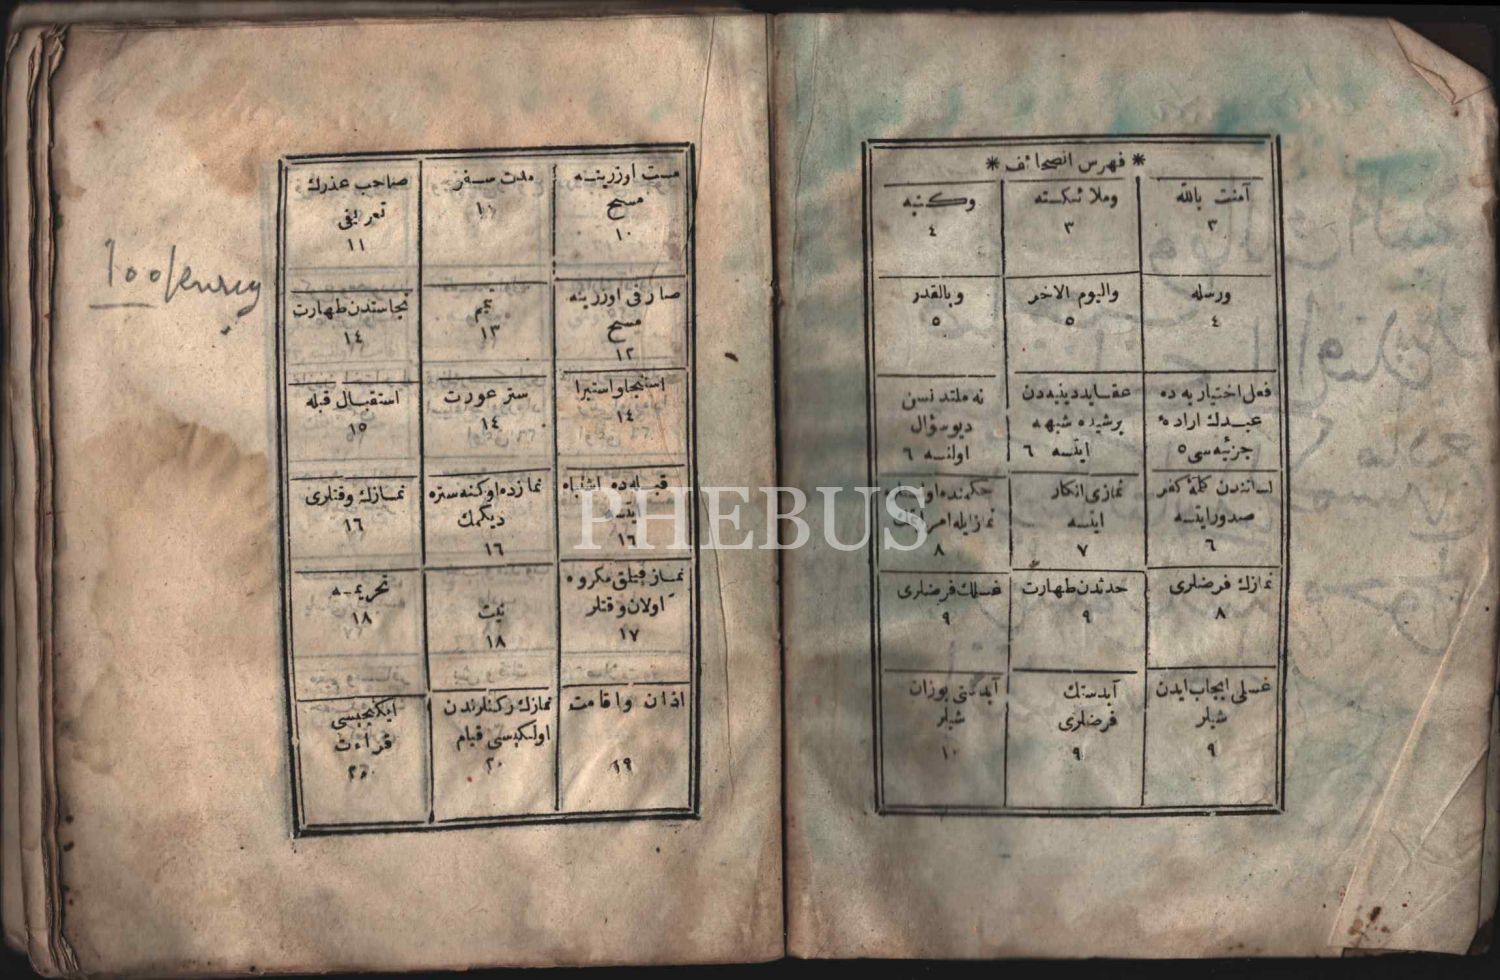 * فهرس الصحائف *
آمنت بالله
٣
وملائكته
٣
وكتبه
٤
ورسله
٤
واليوم الاخر
٥
وبالقدر
٥
فعل اختياريه ده
عبدك اراده
جزئيه سى ٥
عقايد دينيه دن
برشيده شبهه
ايتسه ٦
نه ملتدنسن
ديو سؤال
اولنسه ٦
لساندن كلمۀ كفر
صدور ايتسه
٦
نمازى انكار
ايتسه
٧
نماز ايله امر
٨
نمازك فرضلرى
٨
حدثدن طهارت
٩
غسلك فرضلرى
٩
غسلى ايجاب ايدن
شيلر
٩
آبدستك
فرضلرى
٩
آبدستى بوزان
شيلر
١٠
مست اوزرينه
مسح
١٠
مدت سفر
١١
صاحب عذرك
تعريفى
١١
صارغى اوزرينه
مسح
١٢
تيمم
١٣
نجاستدن طهارت
١٤
استنجا واستبرا
١٤
ستر عورت
١٤
استقبال قبله
١٥
قبله ده اشتباه
ايتسه
١٦
نمازده اوكنه ستره
ديكمك
١٦
نمازك وقتلرى
١٦
نماز قيلق مكروه
اولان وقتلر
١٧
نيت
١٨
تحريمه
١٨
اذان واقامت
١٩
نمازك ركنلرندن
اولكيسى قيام
٢٠
ايكنجيسى
قراءت
٢٠
100
PHEBUS